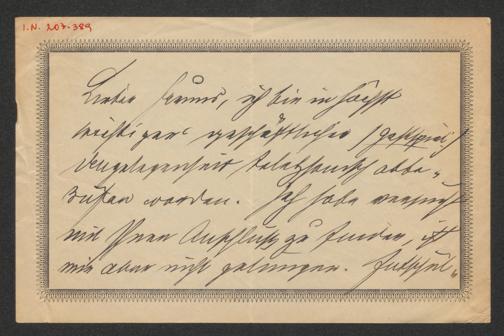 I.N. 207.389
Lieber Freund, ich bin in höchst
wichtiger geschäftlicher (Gastspiel)
Angelegenheit telephonisch abbe-
rufen worden. Ich habe versucht
mit Ihnen Anschluß zu finden, ist
mir aber nicht gelungen. Entschul-